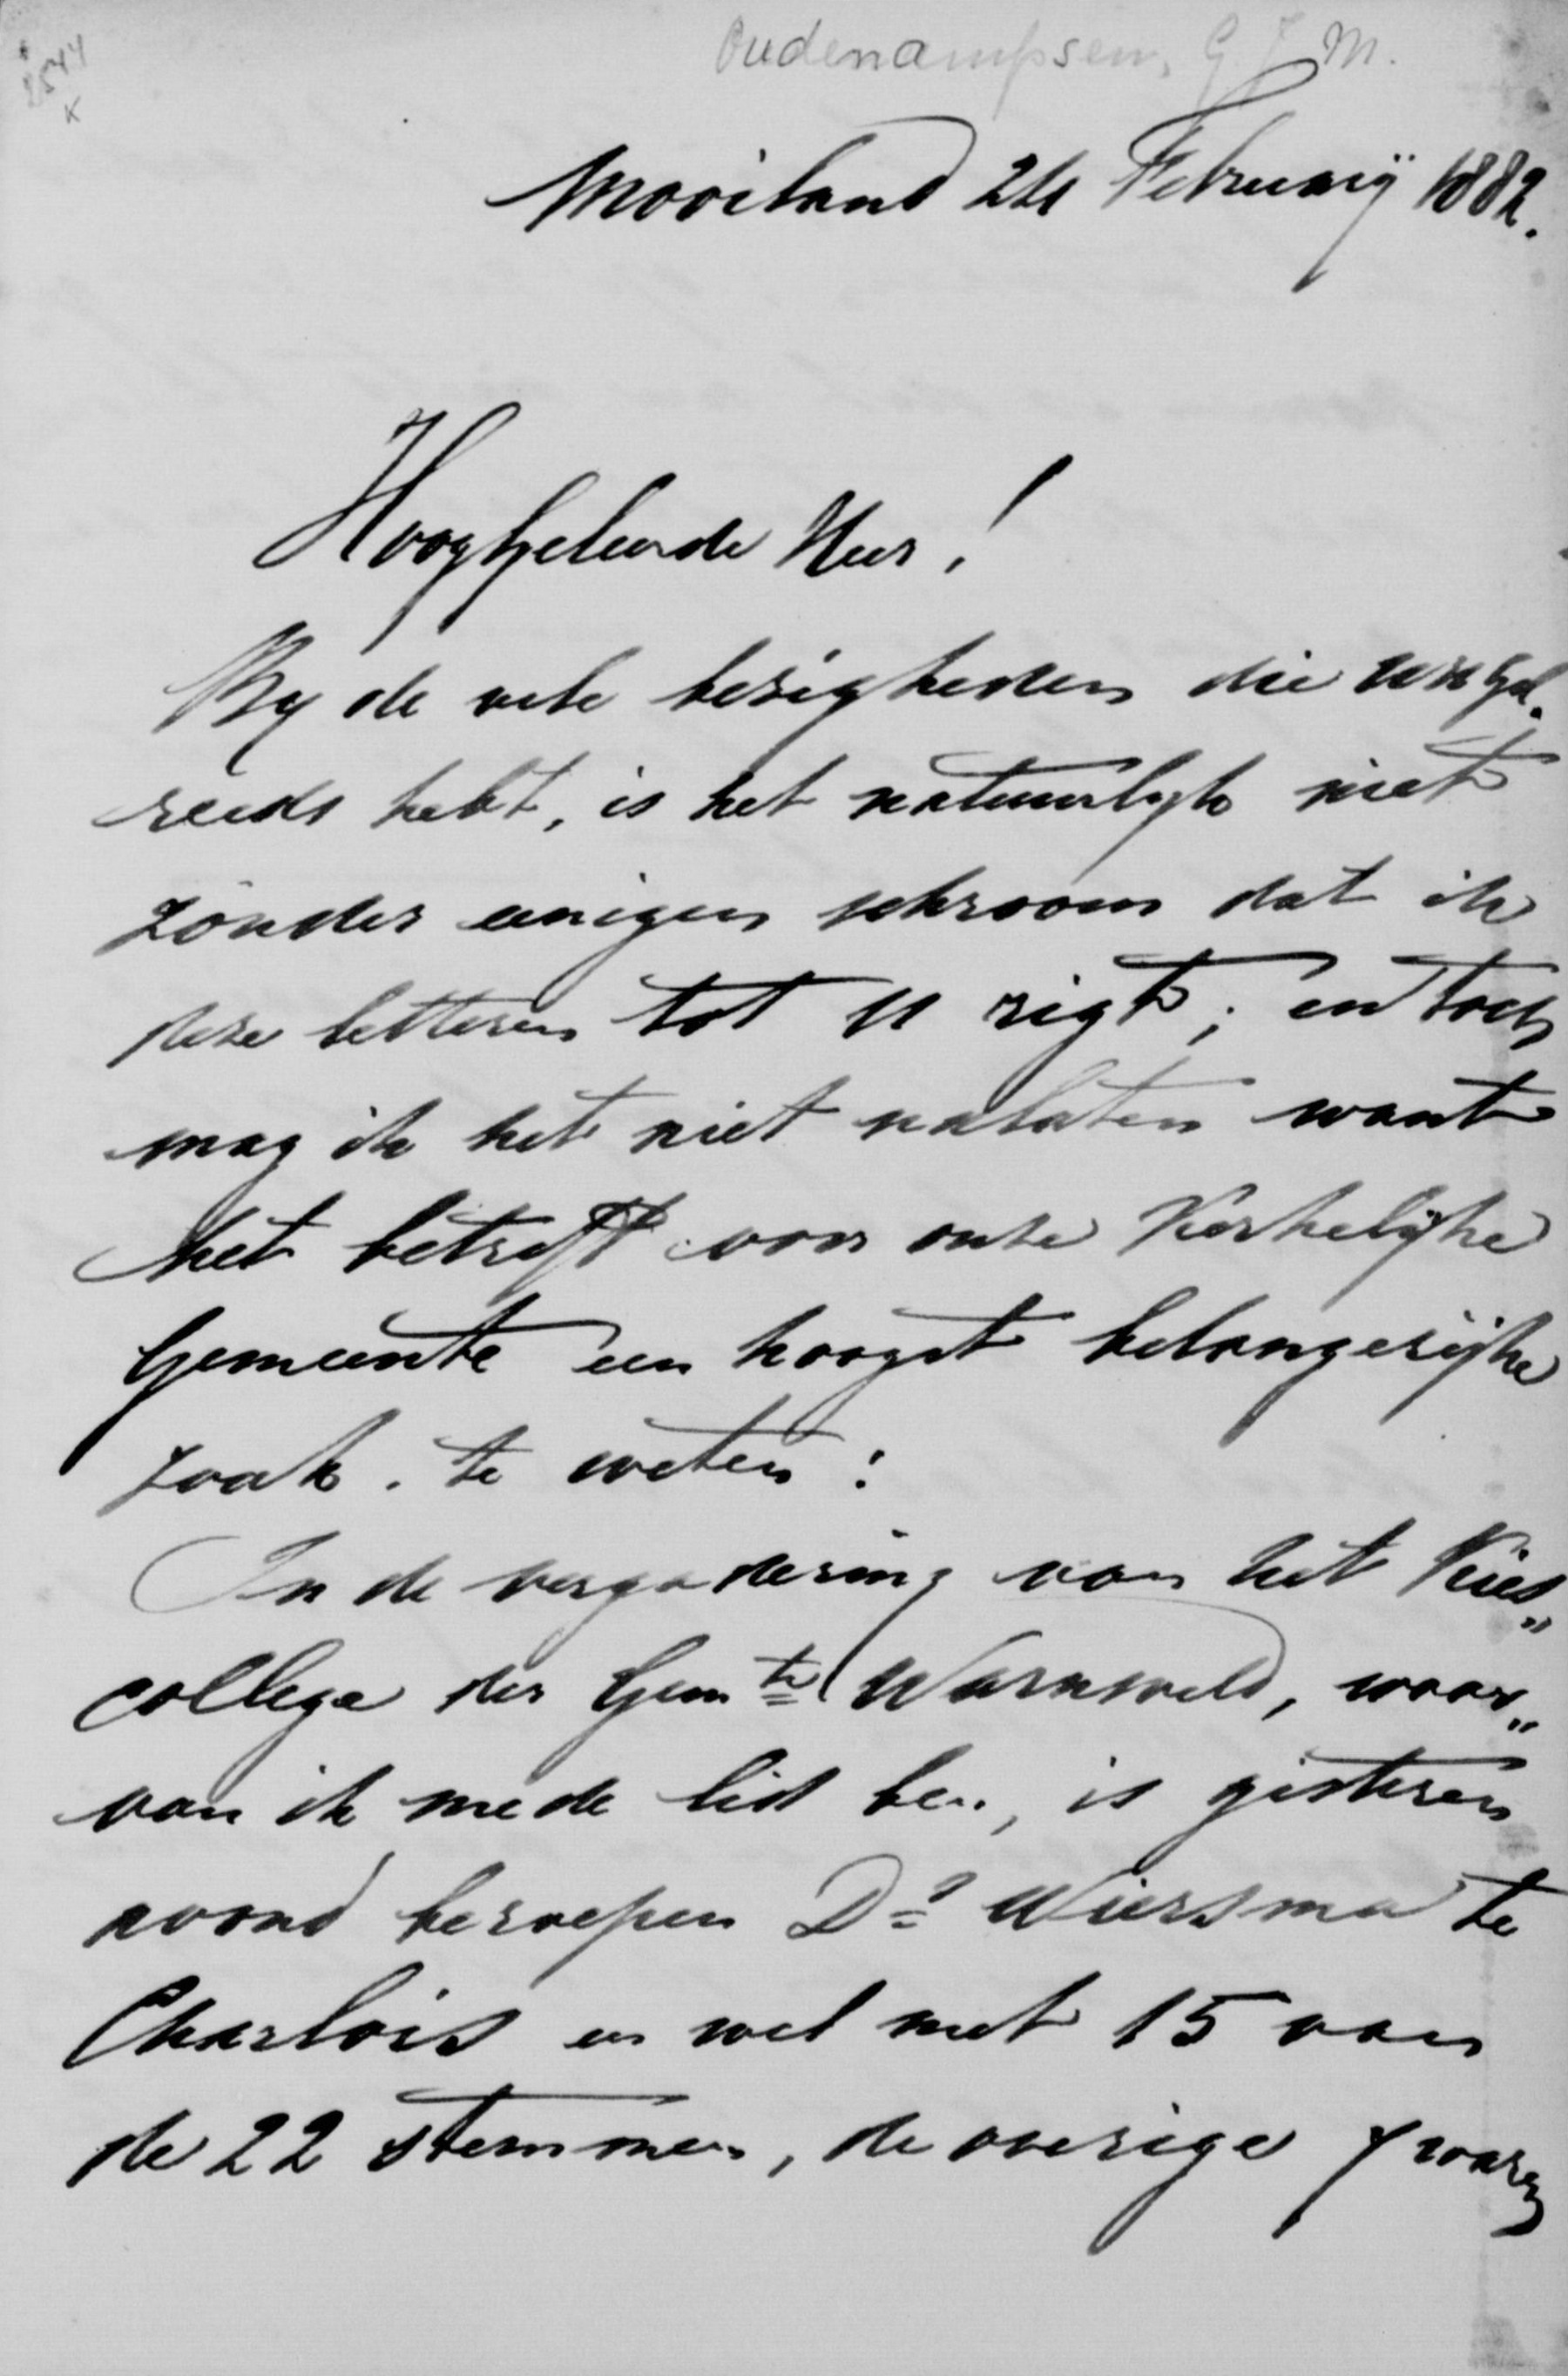 Oudenampsen, G. J. M.
2544
x
Mooiland 24 Februarij 1882.
HoogGeleerde Heer!
Bij de vele bezigheden die UHGel.
reeds hebt, is het natuurlijk niet
zonder eenigen schroom dat ik
deze letteren tot U rigt; en toch
mag ik het niet nalaten want
het betreft voor onze Kerkelijke
Gemeente een hoogst belangerijke
zaak. te weten:
In de vergadering van het Kies„
college der Gemte Warnsveld, waar„
van ik mede lid ben, is gisteren
avond beroepen Ds Wiersma te
Charlois en wel met 15 van
de 22 stemmen, de overige 7 waren